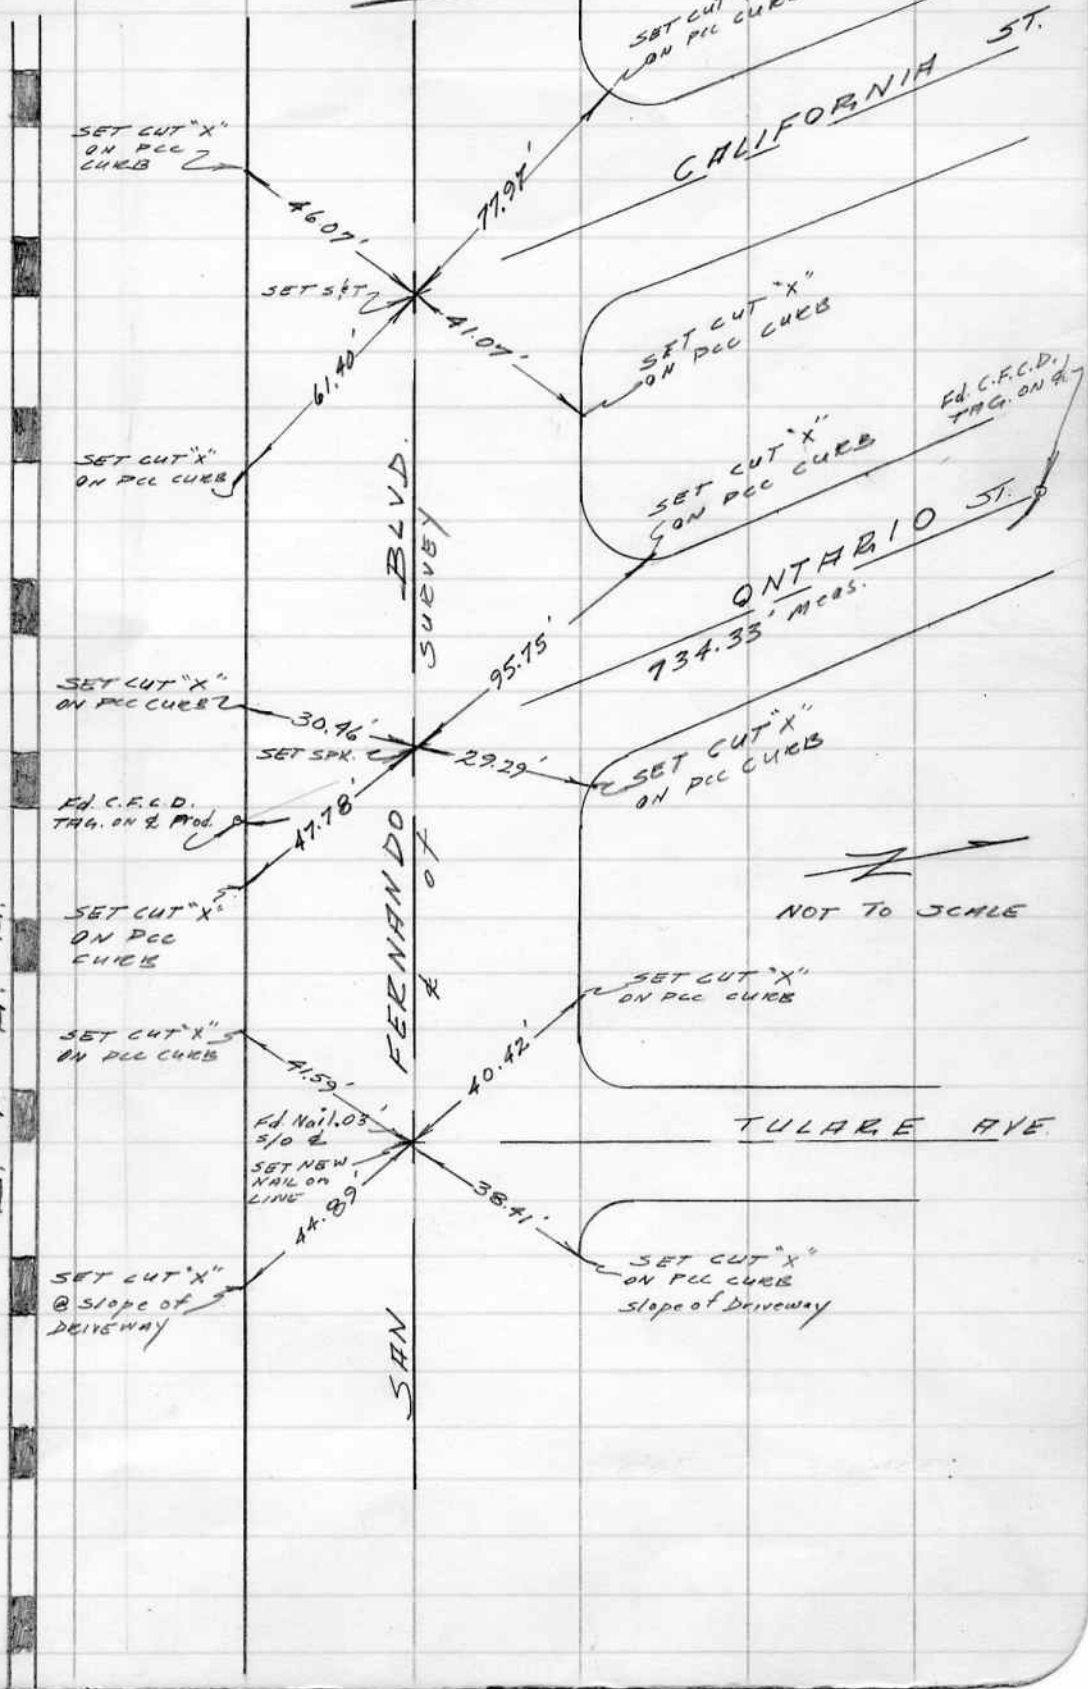 SET CUT
ON PCC CURB
CALIFORNIA ST.
SET CUT "X"
ON PCC
CURB
77.97'
46.07'
SET S&T
41.07'
SET CUT "X"
ON PCC CURB
61.40'
SET CUT "X"
ON PCC CURB
Fd. C.F.C.D.
TAG. ON ℄
SET CUT "X"
ON PCC CURB
BLVD.
SURVEY
ONTARIO ST.
734.33' Meas.
95.75'
SET CUT "X"
ON PCC CURB
30.46'
SET SPK.
29.29'
SET CUT "X"
ON PCC CURB
Fd. C.F.C.D.
TAG. ON ℄ Prod.
47.78'
FERNANDO
℄ of
SET CUT "X"
ON PCC
CURB
NOT TO SCALE
SET CUT "X"
ON PCC CURB
SET CUT "X"
ON PCC CURB
41.59'
40.42'
Fd. Nail .03'
S/O ℄
SET NEW
NAIL ON
LINE
TULARE AVE.
44.89'
38.41'
SET CUT "X"
@ Slope of
DRIVEWAY
SET CUT "X"
ON PCC CURB
Slope of Driveway
SAN